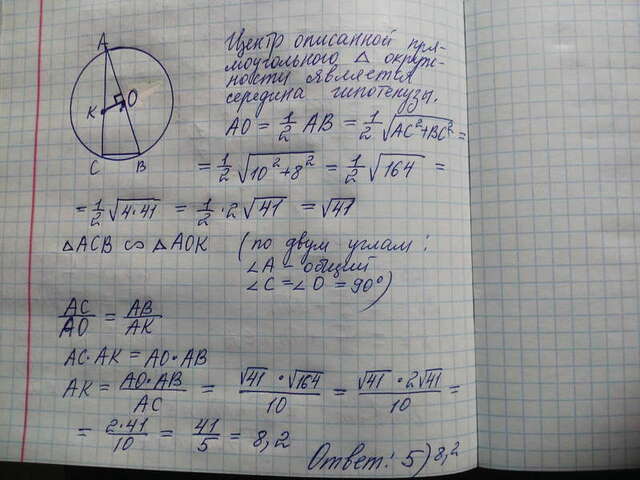 A
O
K
C B
Центр описанной пря-
моугольного △ окруж-
ности является
середина гипотенузы.
AO = 1/2 AB = 1/2 √(AC²+BC²) =
= 1/2 √(10²+8²) = 1/2 √164 =
= 1/2 √(4·41) = 1/2 · 2√41 = √41
△ACB ∽ △AOK (по двум углам:
∠A – общий
∠C = ∠O = 90°)
AC/AO = AB/AK
AC·AK = AO·AB
AK = AO·AB/AC = √41·√164/10 = √41·2√41/10 =
= 2·41/10 = 41/5 = 8,2
Ответ: 5) 8,2